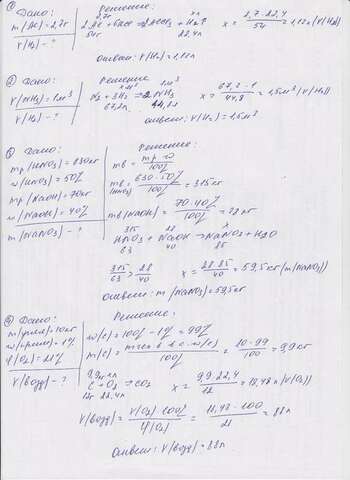 ① Дано:
m(Al)=2,7г
V(H₂) - ?
Решение:
2,7г x
2Al + 6HCl → 2AlCl₃ + 3H₂↑
54г
x = 2,7 · 22,4 / 54 = 1,12л (V(H₂))
Ответ: V(H₂) = 1,12л
② Дано:
V(NH₃) = 1м³
V(H₂) - ?
Решение
xм³ 1м³
N₂ + 3H₂ → 2NH₃
67,2л 44,8л
x = 67,2 · 1 / 44,8 = 1,5м³ (V(H₂))
Ответ: V(H₂) = 1,5м³
Дано:
mр(HNO₃) = 630кг
w(HNO₃) = 50%
mр(NaOH) = 70кг
w(NaOH) = 40%
m(NaNO₃) - ?
Решение:
mв = mр · w / 100%
mв (HNO₃) = 630 · 50% / 100% = 315кг
mв(NaOH) = 70 · 40% / 100% = 28кг
315 28 x
HNO₃ + NaOH → NaNO₃ + H₂O
63 40 85
315/63 > 28/40
x = 28 · 85 / 40 = 59,5кг (m(NaNO₃))
Ответ: m(NaNO₃) = 59,5кг
④ Дано:
m(угля) = 10кг
w(прим) = 1%
φ(O₂) = 21%
V(возд) - ?
Решение:
w(C) = 100% - 1% = 99%
= 10 · 99 / 100 = 9,9кг
C + O₂ → CO₂
12г 22,4л
x = 9,9 · 22,4 / 12 = 18,48л (V(O₂))
V(возд) = V(O₂) · 100% / φ(O₂) = 18,48 · 100 / 21 = 88л
Ответ: V(возд) = 88л